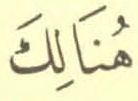 هُنَالِكَ